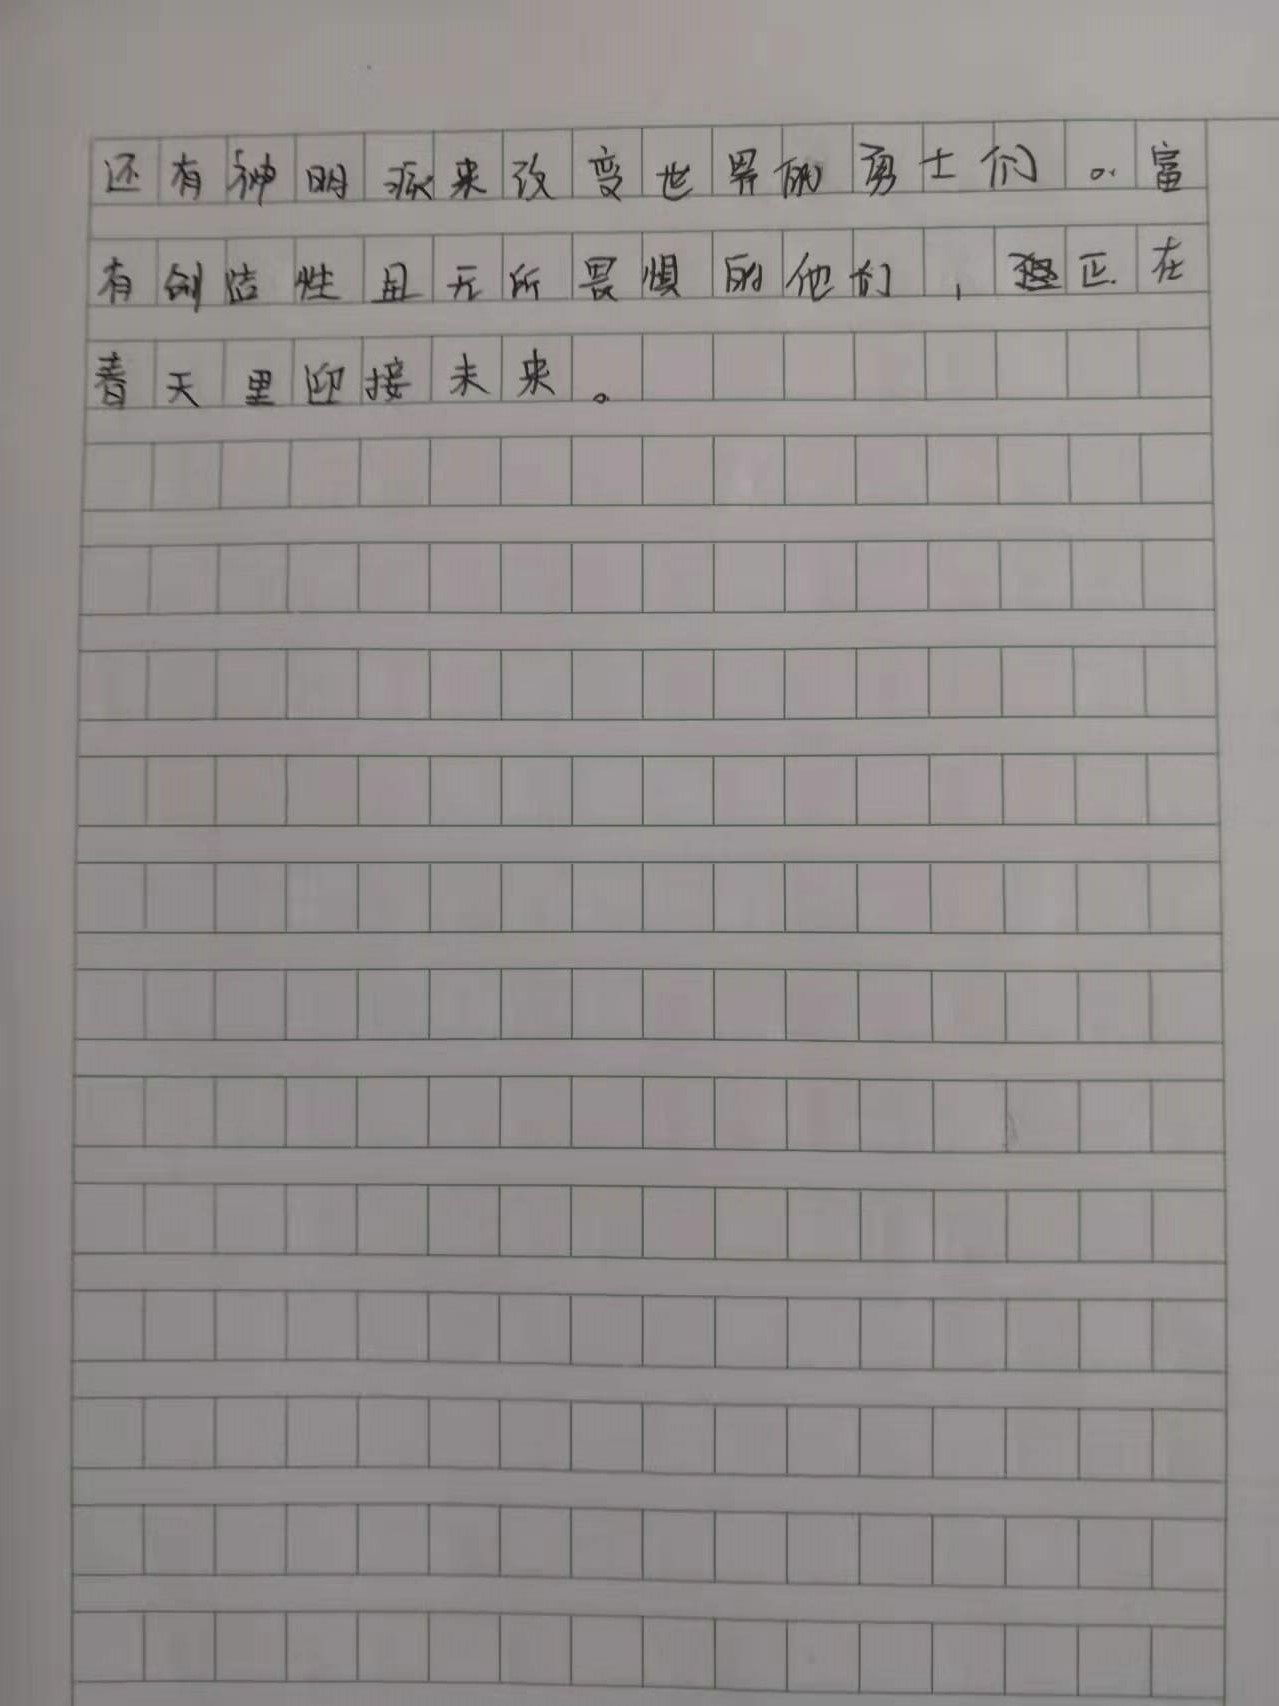 还有神明派来改变世界的勇士们。富
有创造性且无所畏惧的他们，正在
春天里迎接未来。